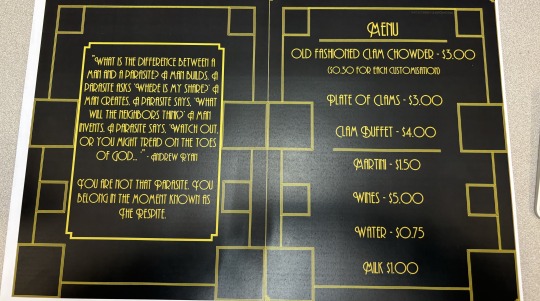 "What is the difference between a
man and a parasite? A man builds. A
parasite asks 'Where is my share?' A
man creates. A parasite says, 'What
will the neighbors think?' A man
invents. A parasite says, 'Watch out,
or you might tread on the toes
of God... '" - Andrew Ryan
You are not that Parasite. You
belong in the moment known as
The Respite.
Menu
Old Fashioned Clam Chowder - $3.00
($0.50 for each customisation)
Plate of Clams - $3.00
Clam Buffet - $4.00
Martini - $1.50
Wines - $5.00
Water - $0.75
Milk $1.00